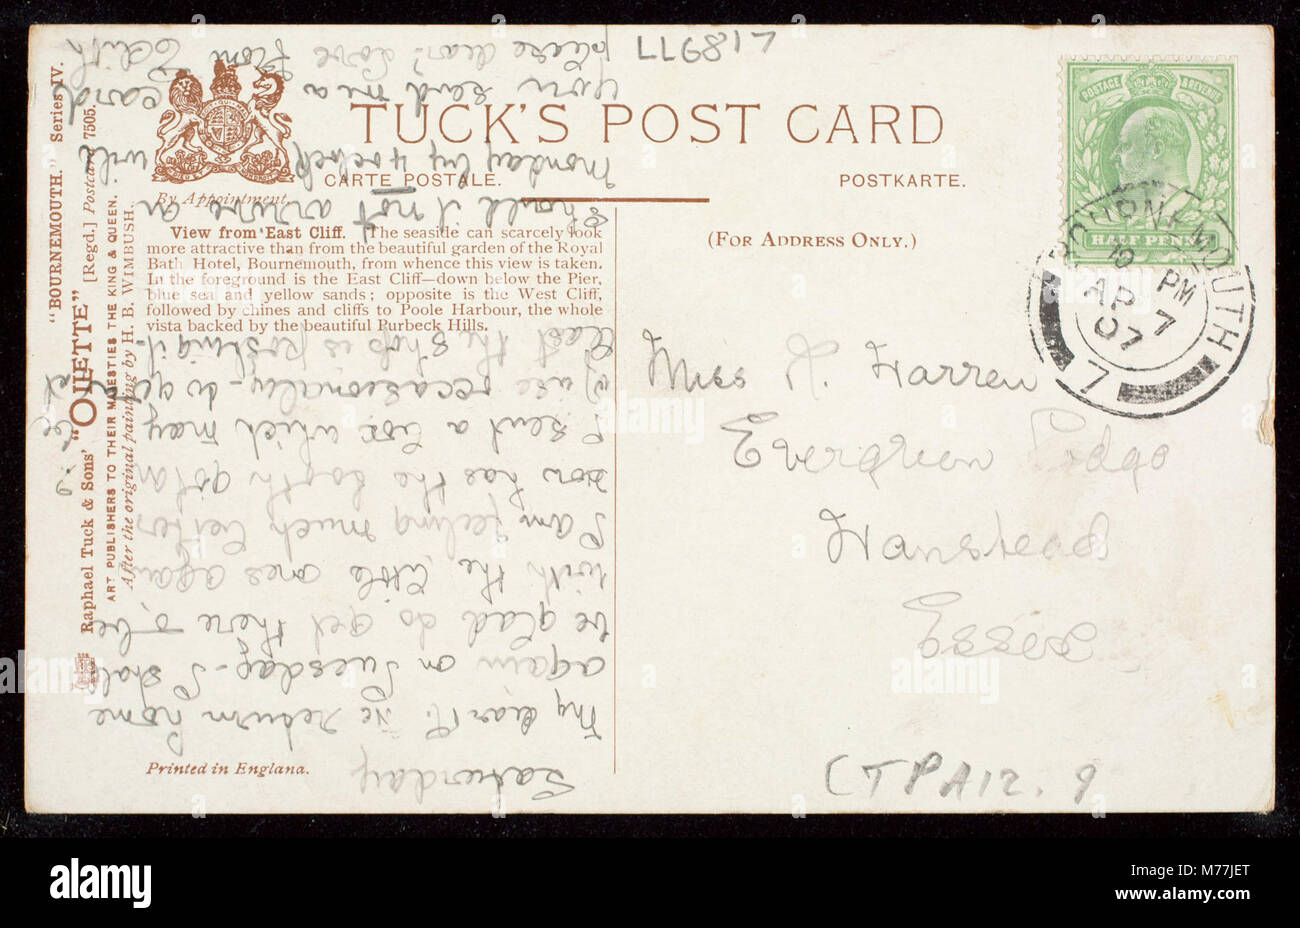 TUCK'S POST CARD
CARTE POSTALE.
POSTKARTE.
By Appointment.
(FOR ADDRESS ONLY.)
View from East Cliff. The seaside can scarcely look
more attractive than from the beautiful garden of the Royal
Bath Hotel, Bournemouth, from whence this view is taken.
In the foreground is the East Cliff—down below the Pier,
blue sea and yellow sands; opposite is the West Cliff,
followed by chines and cliffs to Poole Harbour, the whole
vista backed by the beautiful Purbeck Hills.
"BOURNEMOUTH." Series IV.
Raphael Tuck & Sons' "OILETTE" [Regd.] Postcard 7505.
ART PUBLISHERS TO THEIR MAJESTIES THE KING & QUEEN.
After the original painting by H. B. WIMBUSH.
Printed in England.
POSTAGE REVENUE
HALF PENNY
BOURNEMOUTH
PM
AP 7
07
7
Miss A. Farren
Evergreen Lodge
Wanstead
Essex
CTPA12.9
Saturday
My dear A. We return home
again on Tuesday - I shall
be glad to get there & be
with the little ones again
I am feeling much better
now has the booth got an
I sent a box which may
use occasionally - do you
least the shop is posting it.
Should it not arrive on
Monday by 4 o'clock will
you send me a card
please dear? Love
from Edith
alamy
Image ID: M77JET
www.alamy.com